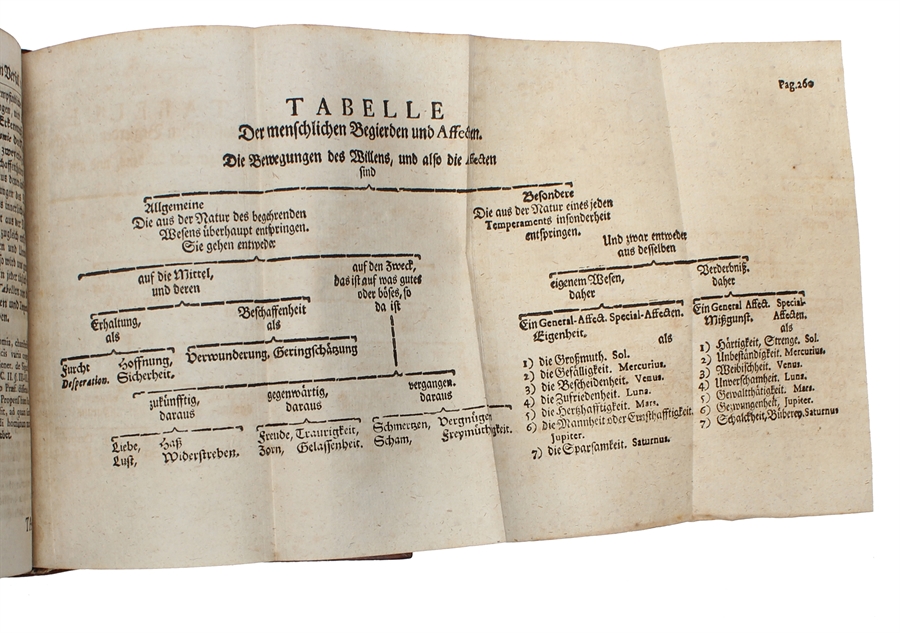 Pag.260
TABELLE
Der menschlichen Begierden und Affecten.
Die Bewegungen des Willens, und also die Affecten
sind
Allgemeine
Die aus der Natur des begehrenden
Wesens überhaupt entspringen.
Sie gehen entweder
auf die Mittel,
und deren
Erhaltung,
als
Furcht Hoffnung,
Desperation. Sicherheit.
Beschaffenheit
als
Verwunderung, Geringschätzung
auf den Zweck,
das ist auf was gutes
oder böses, so
da ist
zukünfftig,
daraus
Liebe, Haß
Lust, Widerstreben.
gegenwärtig,
daraus
Freude, Traurigkeit,
Zorn, Gelassenheit.
vergangen.
daraus
Schmertzen, Vergnügen
Scham, Freymüthigkeit.
Besondere
Die aus der Natur eines jeden
Temperaments insonderheit
entspringen.
Und zwar entweder
aus desselben
eigenem Wesen,
daher
Ein General-Affect. Special-Affecten.
Eigenheit.
als
1) die Großmuth. Sol.
2) die Gefälligkeit. Mercurius.
3) die Bescheidenheit. Venus.
4) die Zufriedenheit. Luna.
5) die Hertzhafftigkeit. Mars.
6) die Mannheit oder Ernsthafftigkeit.
Jupiter.
7) die Sparsamkeit. Saturnus.
Verderbniß.
daher
Ein General Affect. Special-
Mißgunst. Affecten.
als
1) Härtigkeit, Strenge. Sol.
2) Unbeständigkeit. Mercurius.
3) Weibischheit. Venus.
4) Unverschamheit. Luna.
5) Gewaltthätigkeit. Mars.
6) Gezwungenheit, Jupiter.
7) Schalckheit, Büberey. Saturnus